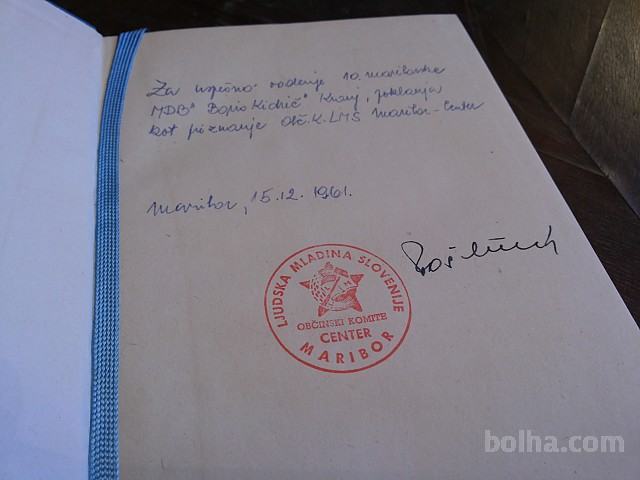 Za uspešno vodenje 10. mariborske
MDB "Boris Kidrič" Kranj, poklanja
kot priznanje Obč.K.LMS Maribor-Center
Maribor, 15.12.1961.
LJUDSKA MLADINA SLOVENIJE
OBČINSKI KOMITE
CENTER
MARIBOR
bolha.com